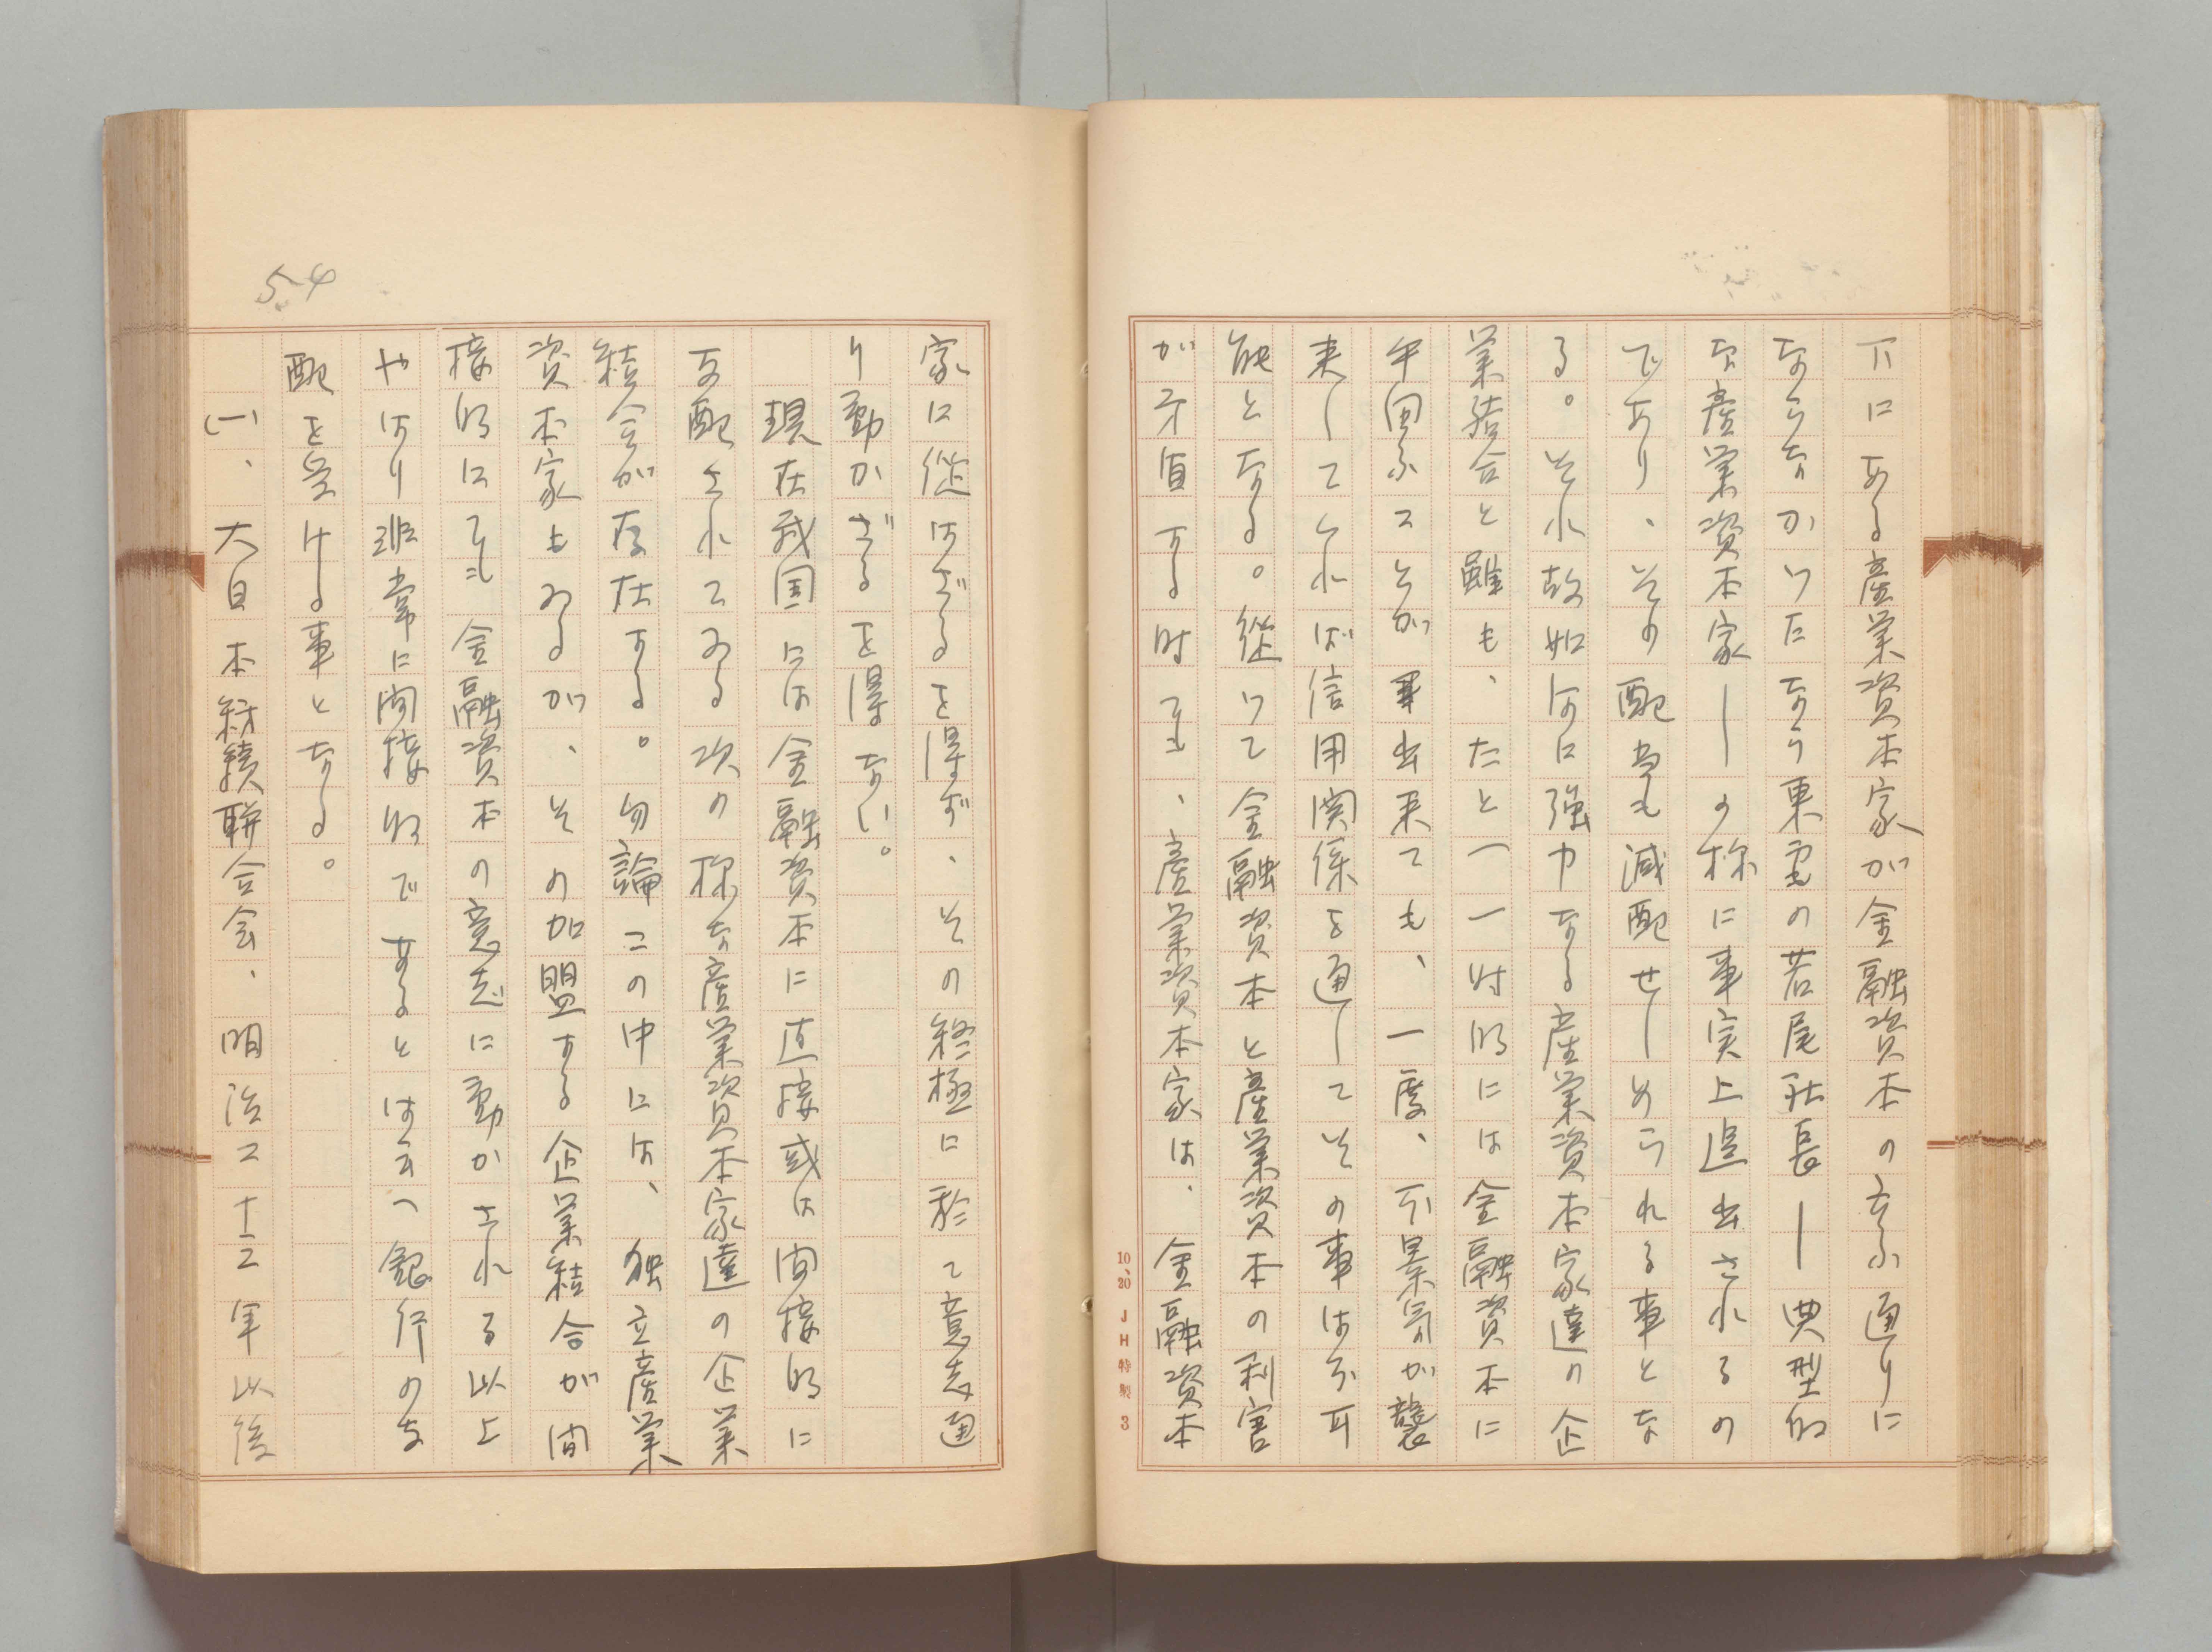 下にある産業資本家が金融資本の云ふ通りに
ならなかつたなら東電の若尾社長―典型的
な産業資本家―の様に事実上追出されるの
であり、その配当も減配せしめられる事とな
る。それ故如何に強力なる産業資本家達の企
業結合と雖も、たとへ一時的には金融資本に
斗ふことが出来ても、一度、不景気が襲
来してくれば信用関係を通してその事は不可
能となる。従つて金融資本と産業資本の利害
が矛盾する時でも、産業資本家は、金融資本
10、20 JH特製 3
54
家に従はざるを得ず、その終極に於て意志通
り動かざるを得ない。
現在我国には金融資本に直接或は間接的に
支配されてゐる次の様な産業資本家達の企業
結合が存在する。勿論この中には、独立産業
資本家もゐるが、その加盟する企業結合が間
接的にでも金融資本の意志に動かされる以上
やはり非常に間接的であるとは云へ銀行の支
配を受ける事となる。
(一)、大日本紡績聯合会、明治二十二年以後